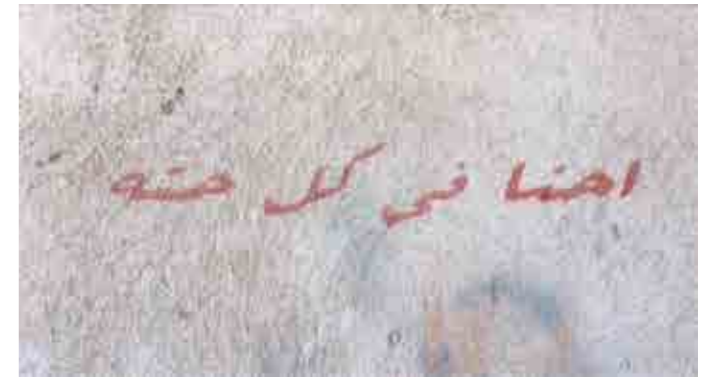 احنا في كل حته